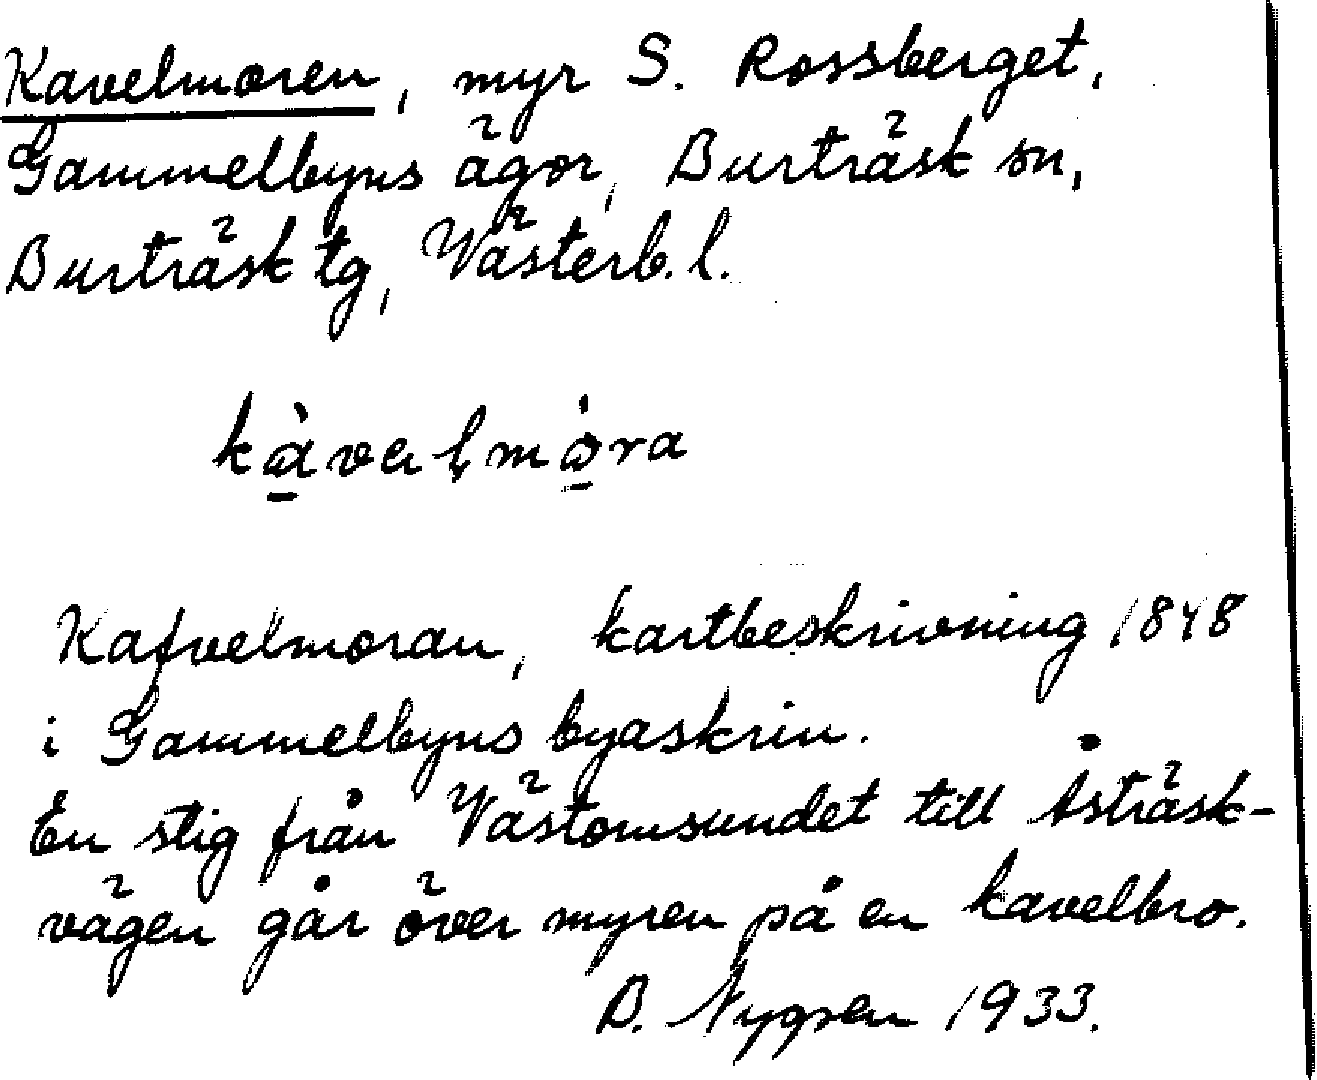 Kavelmoren, myr S. Rossberget,
Gammelbyns ägor, Burträsk sn,
Burträsk tg, Västerb. l.
kàvelmòra
Kafvelmoran, kartbeskrivning 1848
i Gammelbyns byaskrin.
En stig från Västomsundet till Åsträsk-
vägen går över myren på en kavelbro.
B. Nygren 1933.